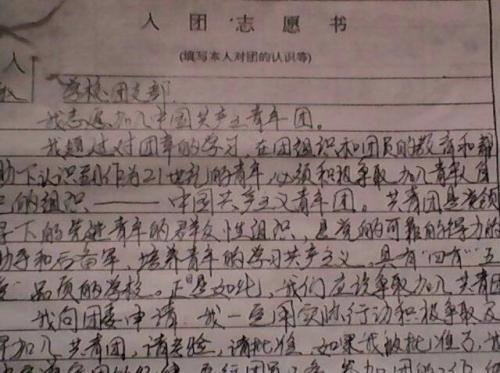 入团志愿书
(填写本人对团的认识等)
学校团支部
我志愿加入中国共产主义青年团。
我通过对团章的学习,在团组织和团员的教育和帮
助下认识到作为21世纪的青年,必须积极争取加入青年人自
己的组织——中国共产主义青年团。共青团是党领
导下的先进青年的群众性组织,是党的可靠的得力的
助手和后备军,培养青年的学习共产主义,具有“四有”五
品质的学校。正是如此,我们应该争取加入共青团
我向团委申请:我一定用实际行动积极争取及
早加入共青团,请考验,请批准。如果我被批准了,我